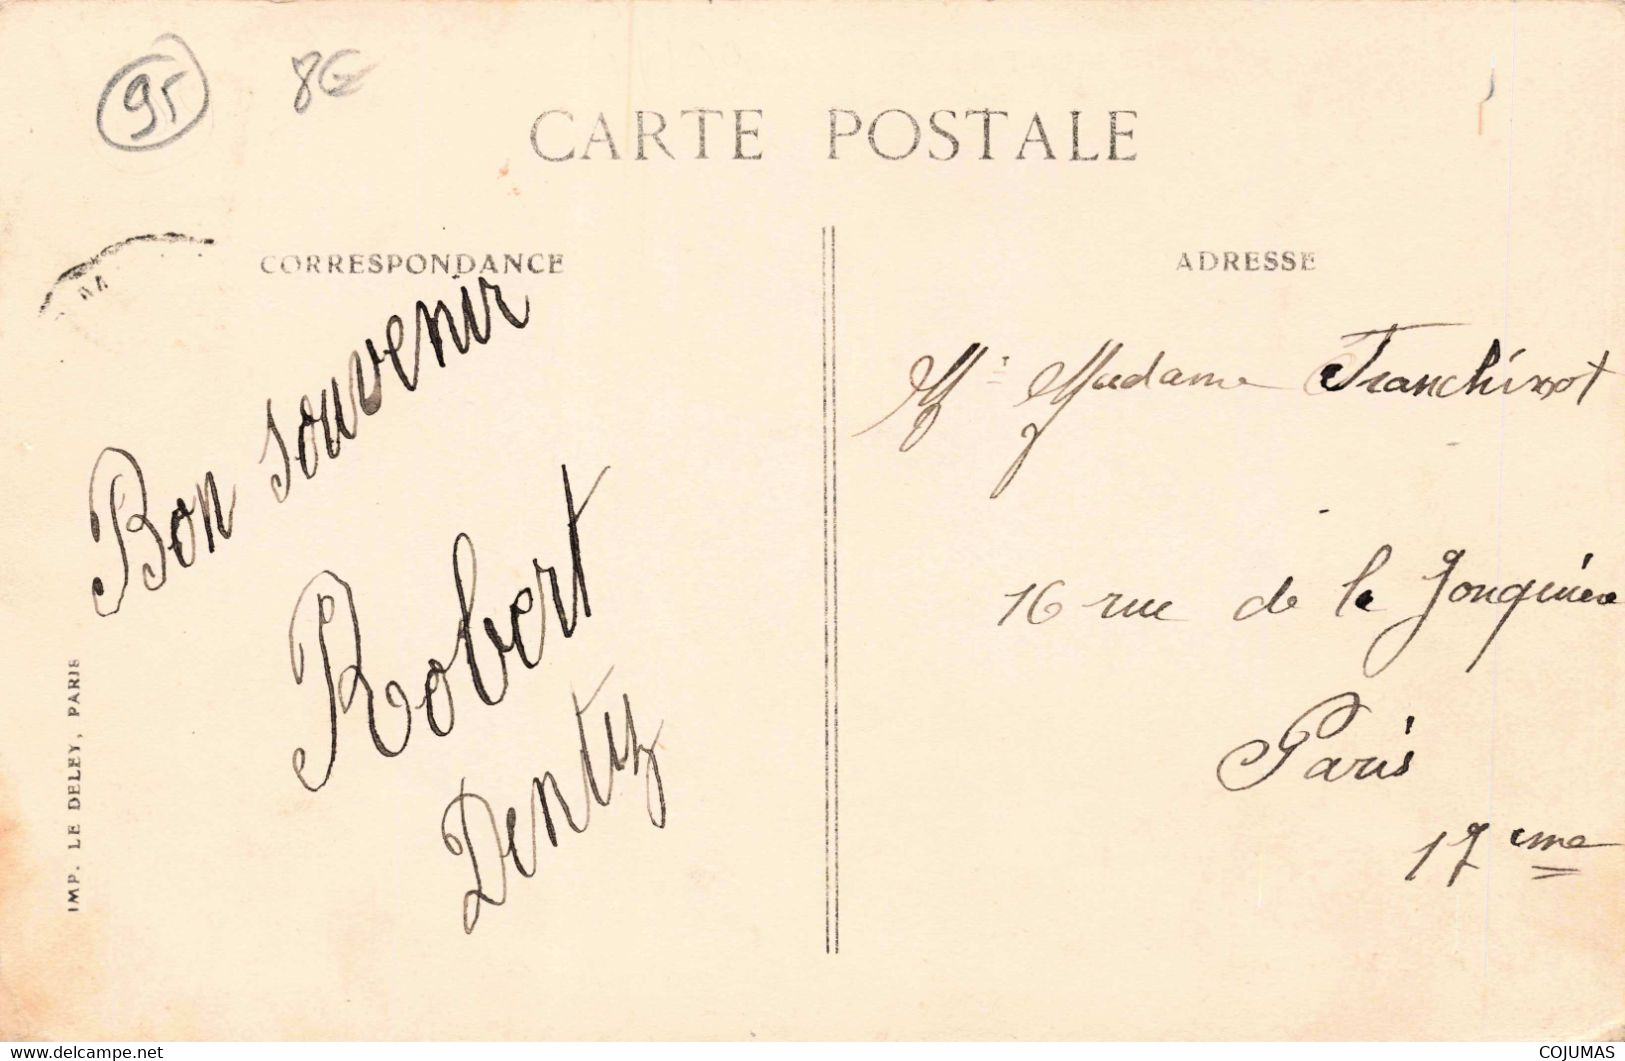 95 8€
CARTE POSTALE
CORRESPONDANCE
Bon souvenir
Robert
IMP. LE DELEY, PARIS
ADRESSE
Mr Madame
16 rue de la Jonquière
Paris
17 eme
delcampe.net
COJUMAS